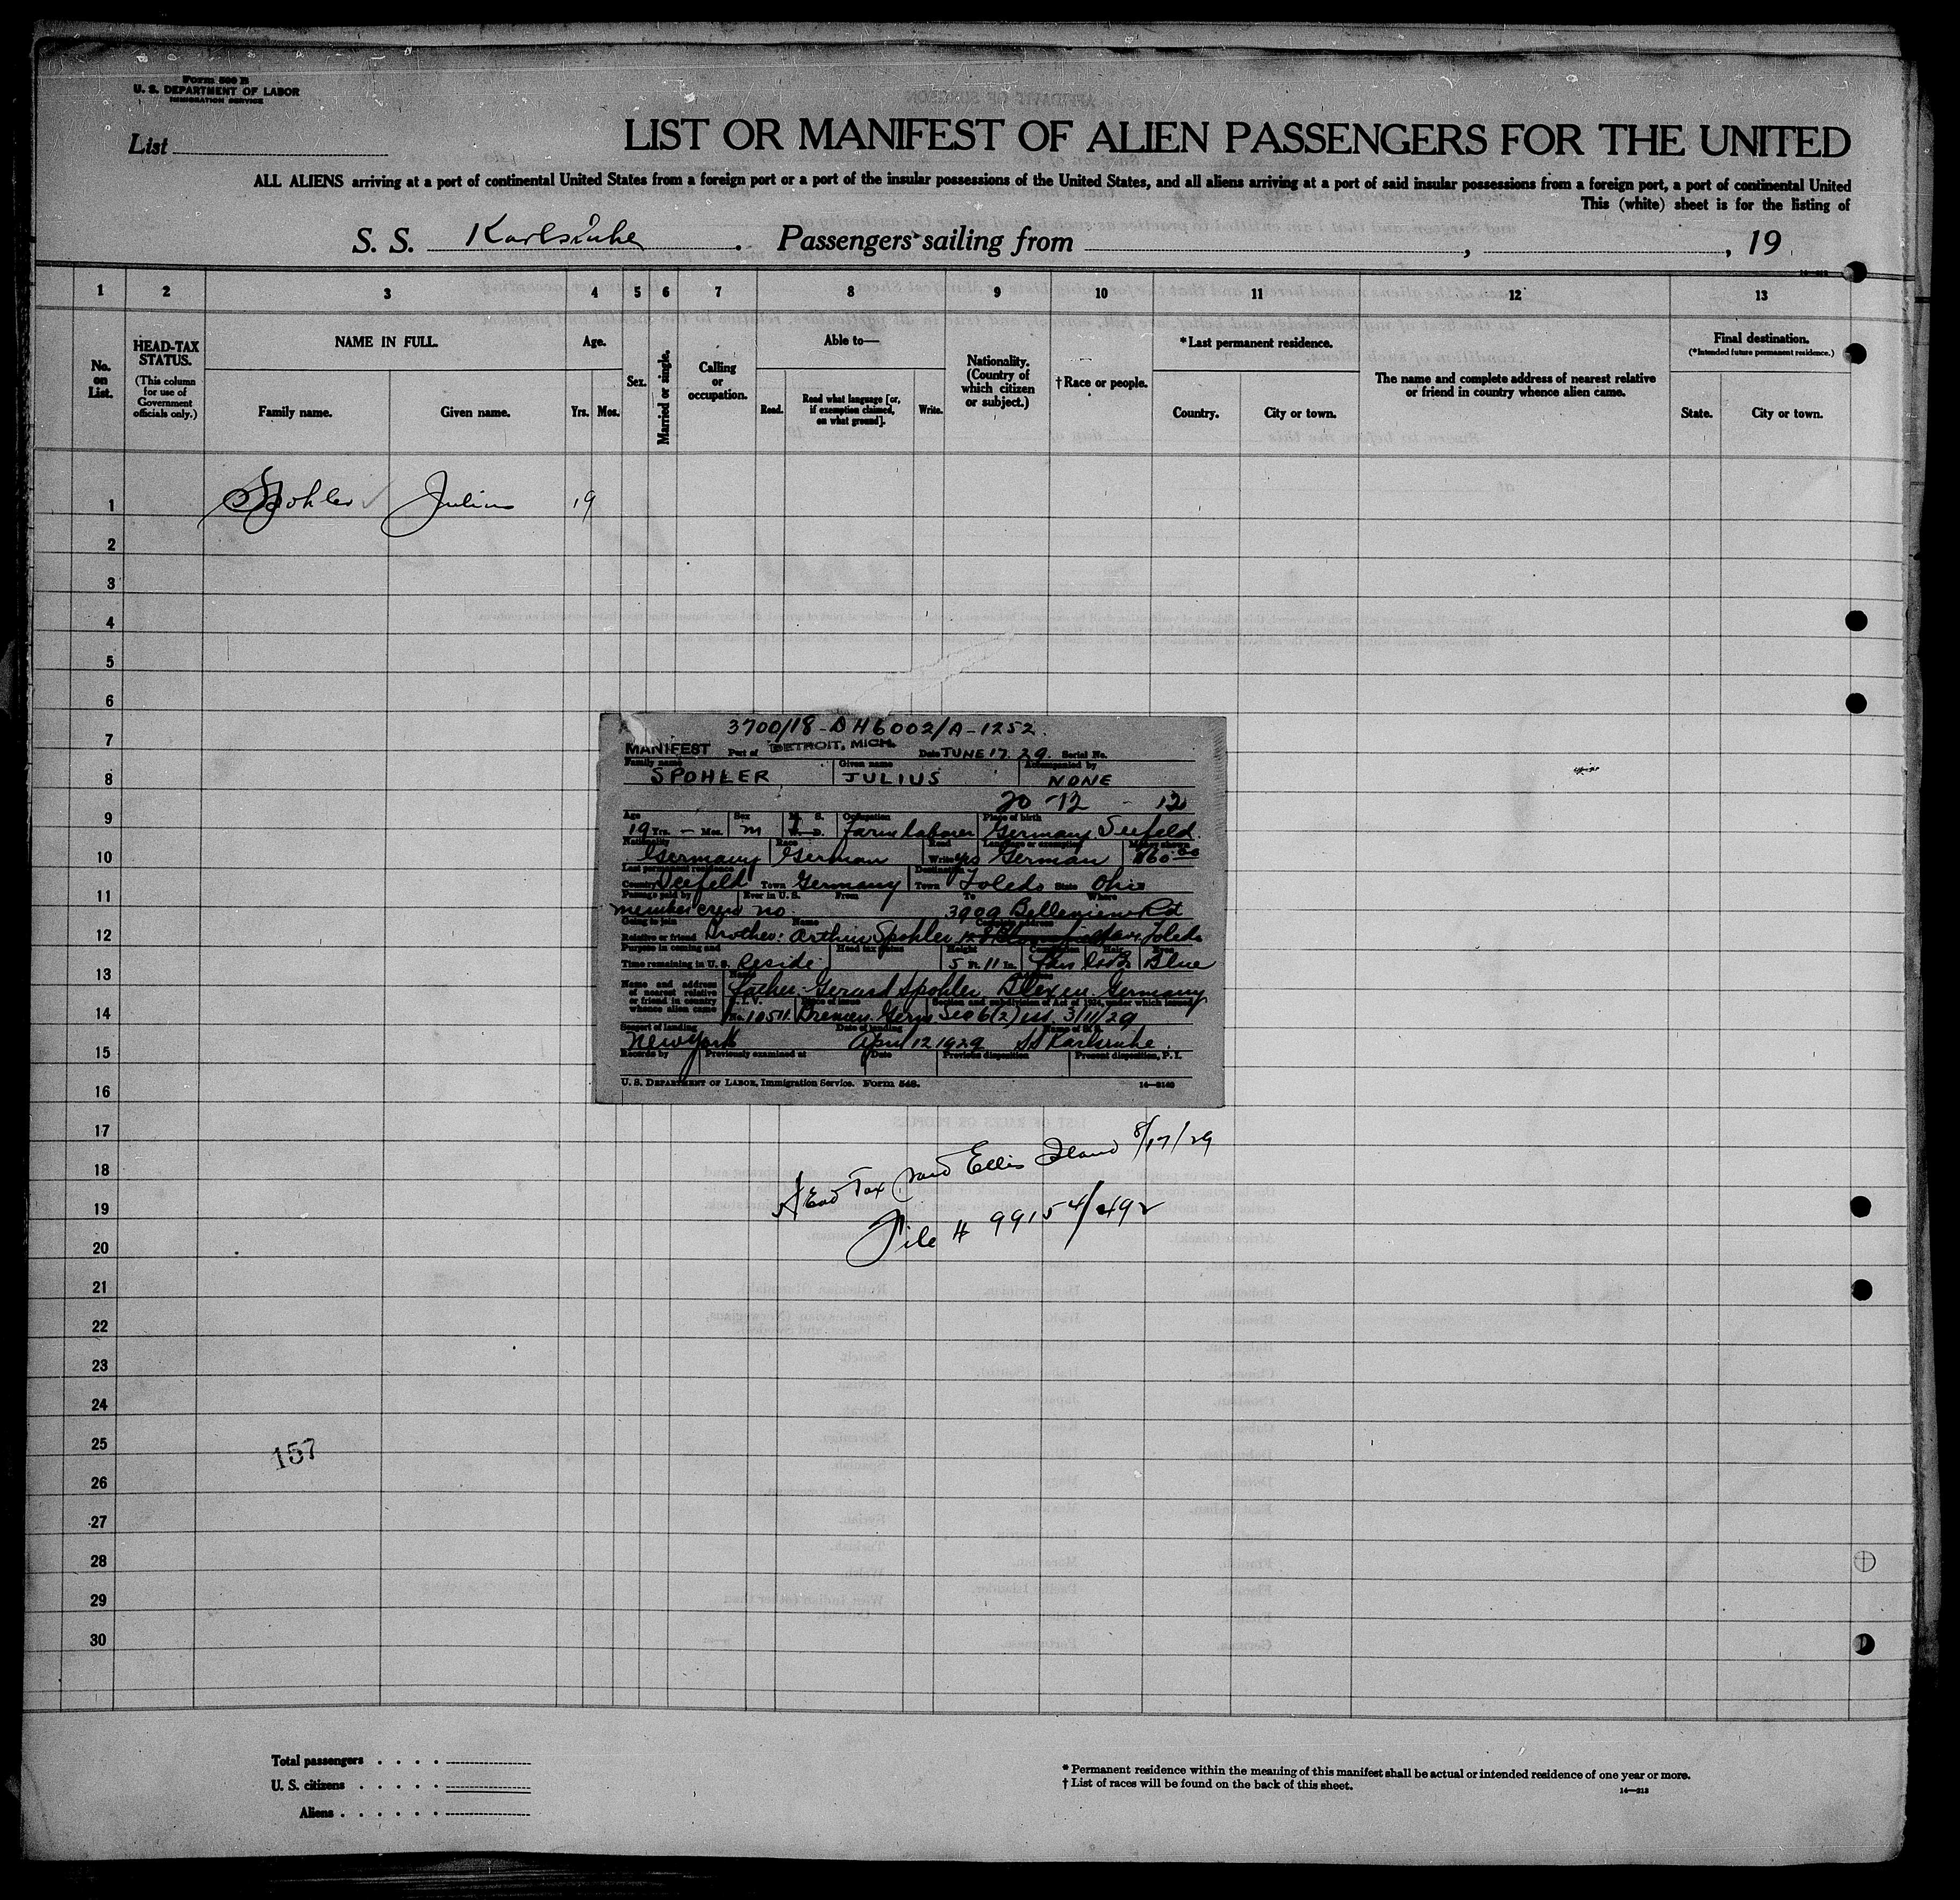 Form 500 B
U. S. DEPARTMENT OF LABOR
IMMIGRATION SERVICE
List
LIST OR MANIFEST OF ALIEN PASSENGERS FOR THE UNITED
ALL ALIENS arriving at a port of continental United States from a foreign port or a port of the insular possessions of the United States, and all aliens arriving at a port of said insular possessions from a foreign port, a port of continental United
This (white) sheet is for the listing of
S. S. Karlsruhe. Passengers sailing from , , 19
1 2 3 4 5 6 7 8 9 10 11 12 13
No. on List.
HEAD-TAX STATUS.
(This column for use of Government officials only.)
NAME IN FULL.
Family name. Given name.
Age.
Yrs. Mos.
Sex.
Married or single.
Calling or occupation.
Able to—
Read. Read what language [or, if exemption claimed, on what ground]. Write.
Nationality. (Country of which citizen or subject.)
†Race or people.
*Last permanent residence.
Country. City or town.
The name and complete address of nearest relative or friend in country whence alien came.
Final destination.
(*Intended future permanent residence.)
State. City or town.
1 Spohler Julius 19
2
3
4
5
6
7
8
9
10
11
12
13
14
15
16
17
18
19
20
21
22
23
24
25
26
27
28
29
30
3700/18-DH6002/A-1252
MANIFEST Port of DETROIT, MICH. Date JUNE 17. 29. Serial No.
Family name SPOHLER Given name JULIUS Accompanied by NONE
20 -12 - 12
Age 19 Yrs. - Mos. Sex m M. S. W. D. Occupation farm laborer Place of birth Germany Seefeld
Nationality Germany Race German Read Write yes Language or exemption German Money shown $60.00
Last permanent residence Country Seefeld Town Germany Destination Town Toledo State Ohio
Passage paid by member crew Ever in U. S. no. From To Where
3909 Bellevue Rd
Going to join Relative or friend Name Brother: Arthur Spohler Toledo
Purpose in coming and Time remaining in U. S. Reside Head tax status Height 5 Ft. 11 In. Complexion Fair Hair Eyes Blue
Name and address of nearest relative or friend in country whence alien came Name father Gerard Spohler Blexen Germany
I. V. No. 10511. Place of issue Bremen Germ. Section and subdivision of Act of 1924, under which issued Sec 6(2) iss. 3/11/29
Seaport of landing New York Date of landing April 12 1929 Name of S. S. SS Karlsruhe.
Records by Previously examined at Date Previous disposition Present disposition, P. I.
U. S. DEPARTMENT OF LABOR, Immigration Service. Form 548. 14—2140
Head Tax paid Ellis Island 8/17/29
File # 99154/492
157
Total passengers
U. S. citizens
Aliens
* Permanent residence within the meaning of this manifest shall be actual or intended residence of one year or more.
† List of races will be found on the back of this sheet.
14—213